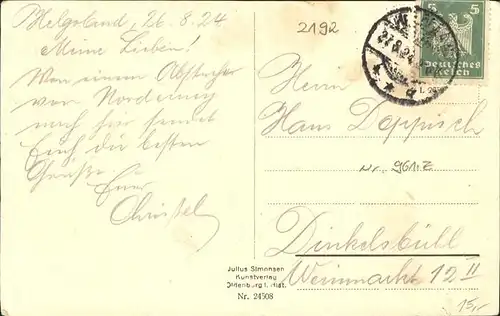 Helgoland, 26.8.24.
Meine Lieben!
Von einem Abstecher
von Norderney
nach hier sendet
Euch die besten
Grüße Euer
Christel
2192
5 5
Deutsches
Reich
27.8.24
Herrn
Hans Deppisch
Nr. 961.Z
Dinkelsbühl
Weinmarkt 12 II
Julius Simonsen
Kunstverlag
Oldenburg i. Holst.
Nr. 24508
15,-